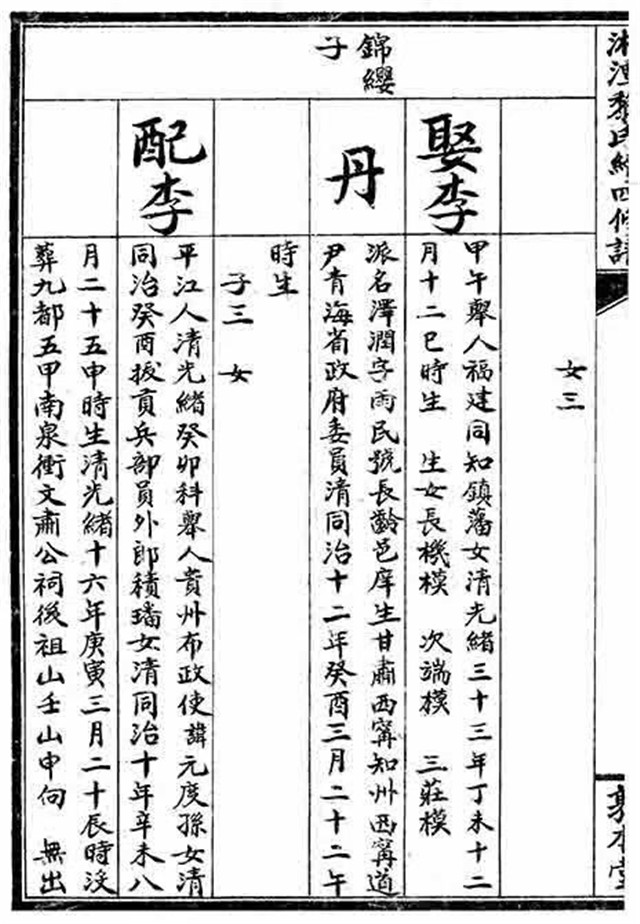 錦纓
子
女三
娶李
甲午舉人福建同知鎮藩女清光緒三十三年丁未十二
月十二巳時生 生女長機模 次端模 三莊模
丹
派名澤潤字雨民號長齡邑庠生甘肅西寗知州西寗道
尹青海省政府委員清同治十二年癸酉三月二十二午
時生
子三 女
配李
平江人清光緒癸卯科舉人貴州布政使諱元度孫女清
同治癸酉拔貢兵部員外郎積璠女清同治十年辛未八
月二十五申時生清光緒十六年庚寅三月二十辰時沒
葬九都五甲南泉衝文肅公祠後祖山壬山申向 無出